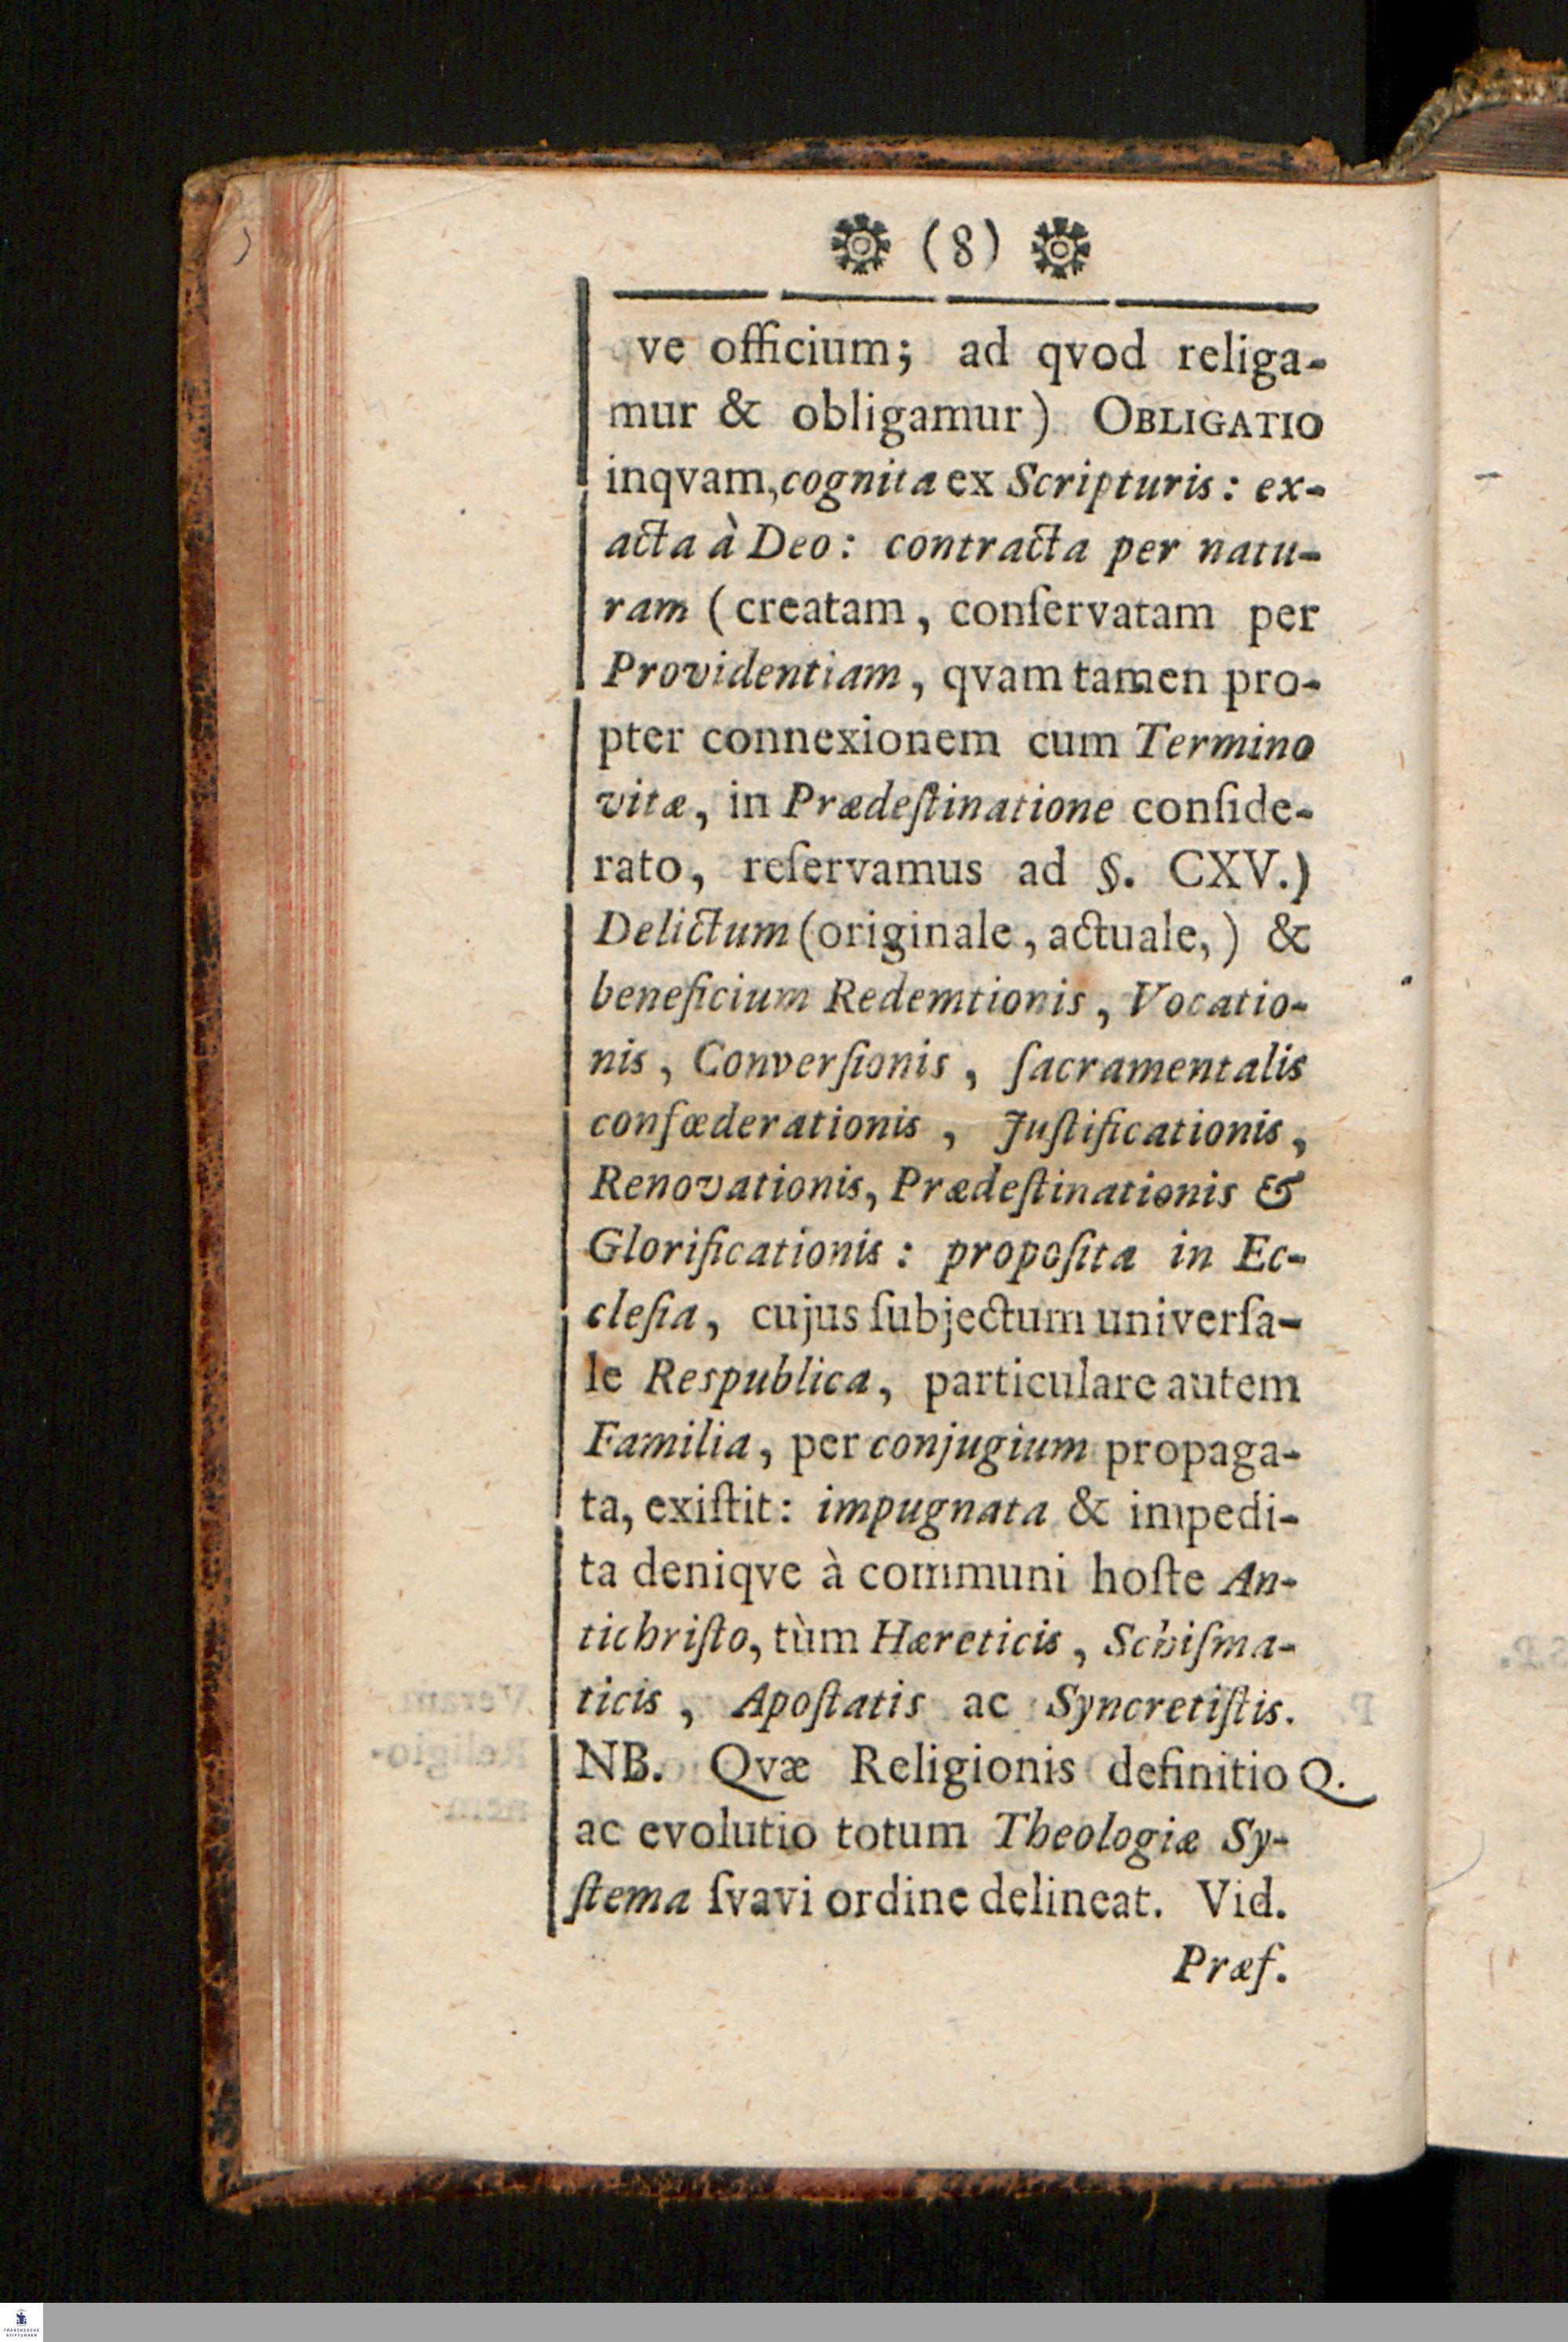 (8)
ve officium; ad qvod religa-
mur & obligamur) OBLIGATIO
inqvam, cognita ex Scripturis: ex-
acta à Deo: contracta per natu-
ram (creatam, conſervatam per
Providentiam, qvam tamen pro-
pter connexionem cum Termino
vitæ, in Prædeſtinatione conſide-
rato, reſervamus ad §. CXV.)
Delictum (originale, actuale,) &
beneficium Redemtionis, Vocatio-
nis, Converſionis, ſacramentalis
confœderationis, Juſtificationis,
Renovationis, Prædeſtinationis &
Glorificationis: propoſita in Ec-
cleſia, cujus ſubjectum univerſa-
le Respublica, particulare autem
Familia, per conjugium propaga-
ta, exiſtit: impugnata & impedi-
ta deniqve à communi hoſte An-
tichriſto, tùm Hæreticis, Schiſma-
ticis, Apoſtatis ac Syncretiſtis.
NB. Qvæ Religionis definitio Q.
ac evolutio totum Theologiæ Sy-
ſtema ſvavi ordine delineat. Vid.
Præf.
FRANCKESCHE
STIFTUNGEN